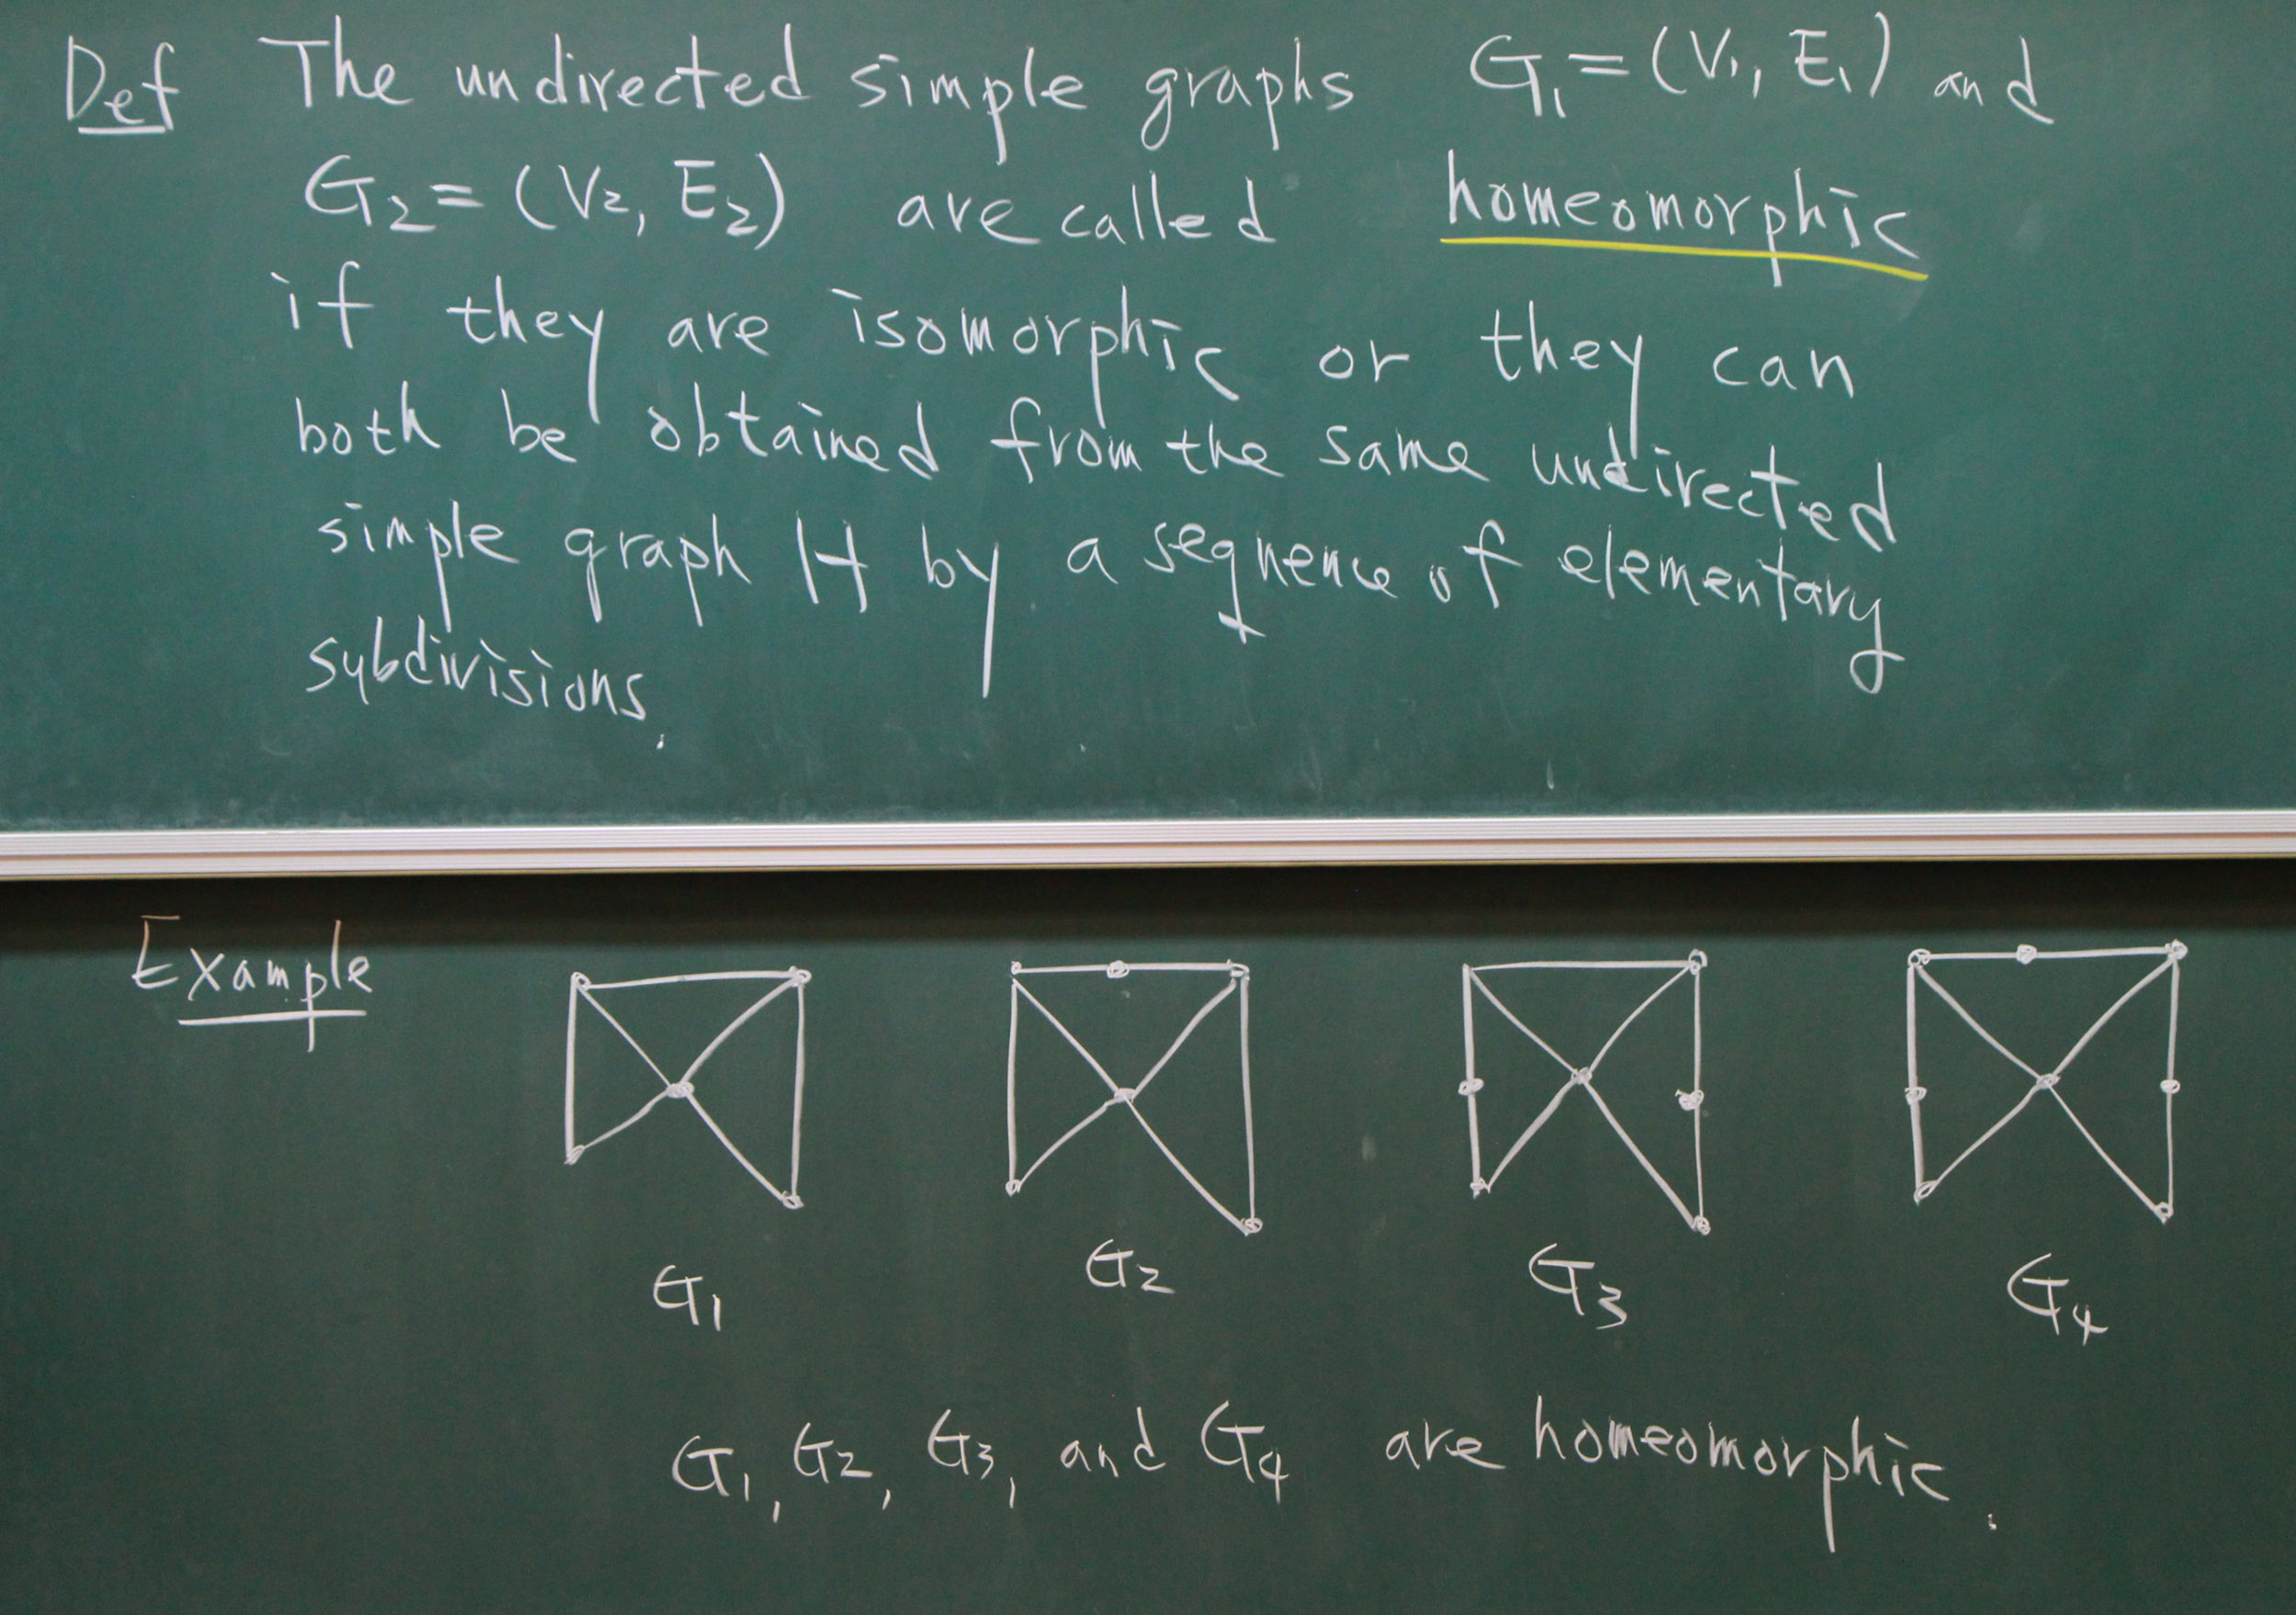 Def The undirected simple graphs G₁=(V₁, E₁) and
G₂=(V₂, E₂) are called homeomorphic
if they are isomorphic or they can
both be obtained from the same undirected
simple graph H by a sequence of elementary
subdivisions.
Example
G₁ G₂ G₃ G₄
G₁, G₂, G₃, and G₄ are homeomorphic.